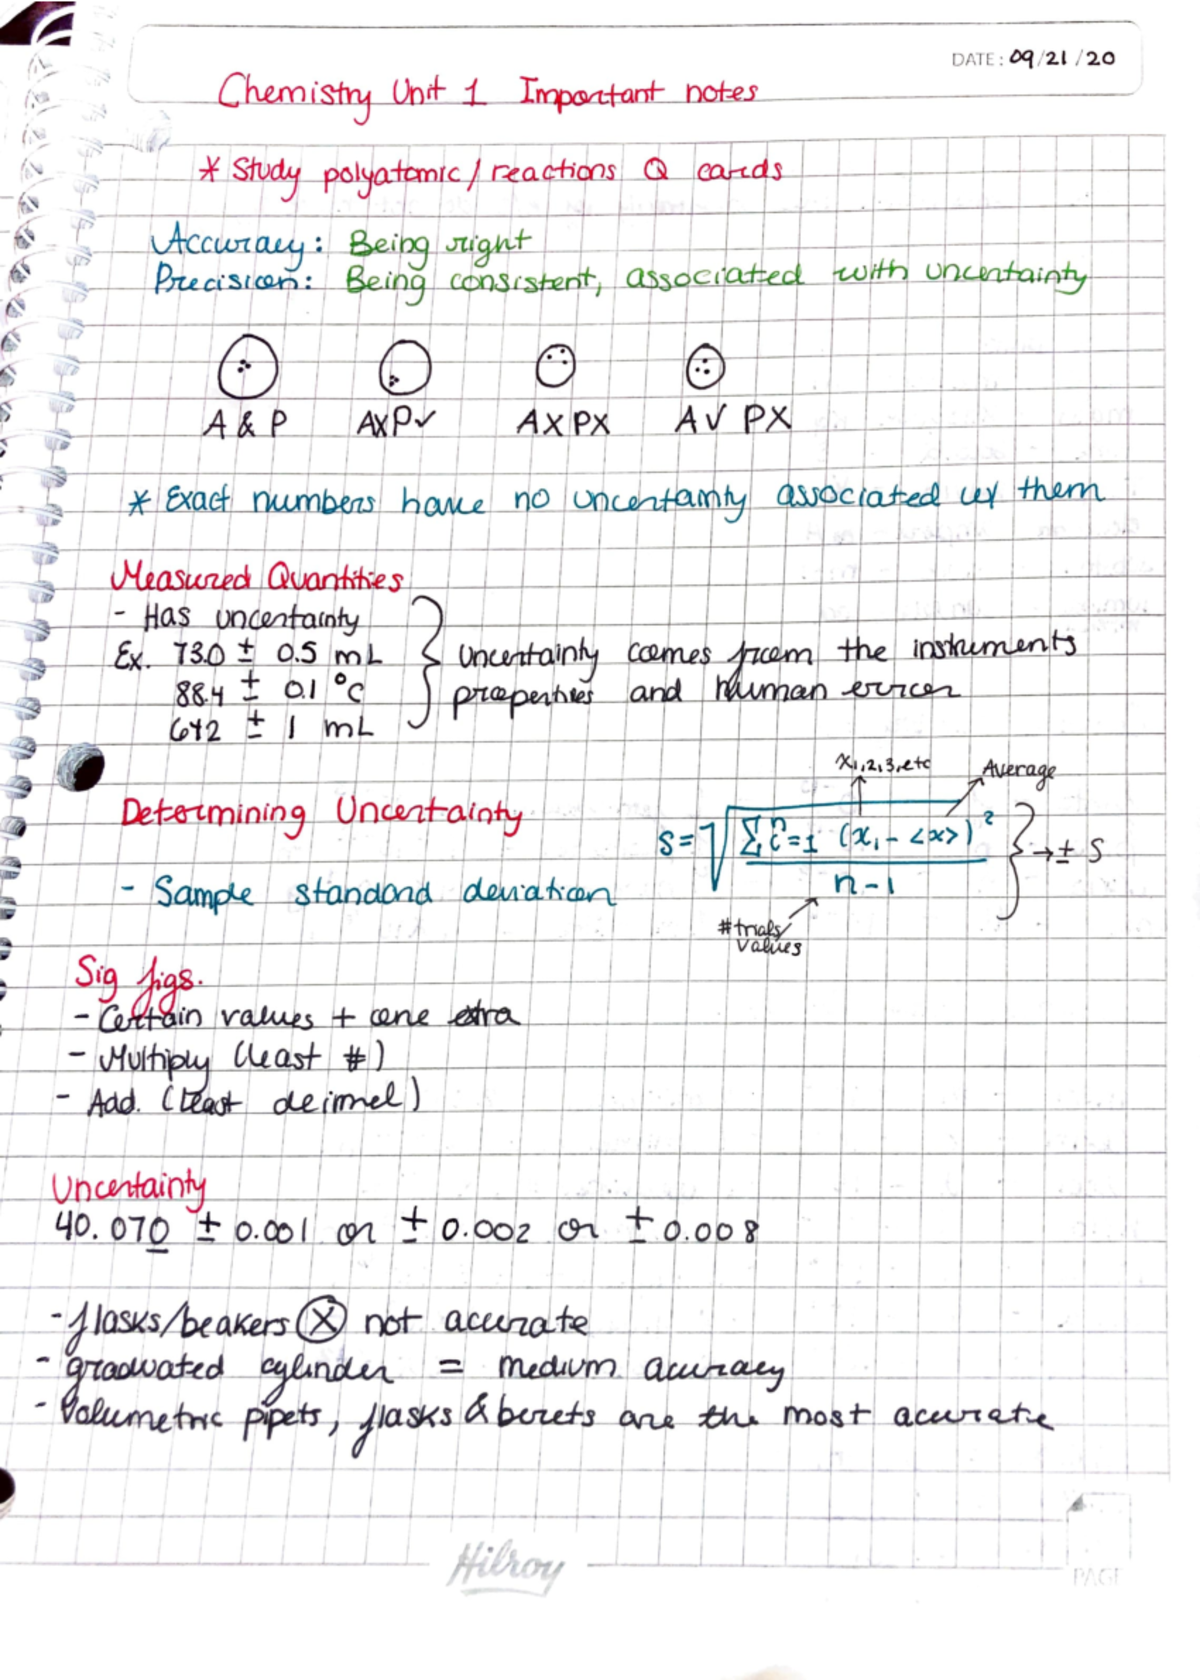 DATE: 09/21/20
Chemistry Unit 1 Important notes
* Study polyatomic/reactions Q cards
Accuracy: Being right
Precision: Being consistent, associated with uncertainty
A & P AXP✓ AXPX A✓ PX
* Exact numbers have no uncertainty associated w/ them
Measured Quantities
- Has uncertainty
Ex. 73.0 ± 0.5 mL
88.4 ± 0.1 °C
642 ± 1 mL
uncertainty comes from the instruments
properties and human error
x1,2,3,etc Average
Determining Uncertainty
S=√ Σ n i=1 (xi - <x>)² → ± S
n-1
- Sample standard deviation
#trials/
values
Sig figs.
- Certain values + one extra
- Multiply (least #)
- Add. (least deimel)
Uncertainty
40.070 ± 0.001 or ± 0.002 or ± 0.008
- flasks/beakers Ⓧ not accurate
- graduated cylinder = medium acuracy
- Volumetric pipets, flasks & burets are the most acurate
Hilroy
PAGE